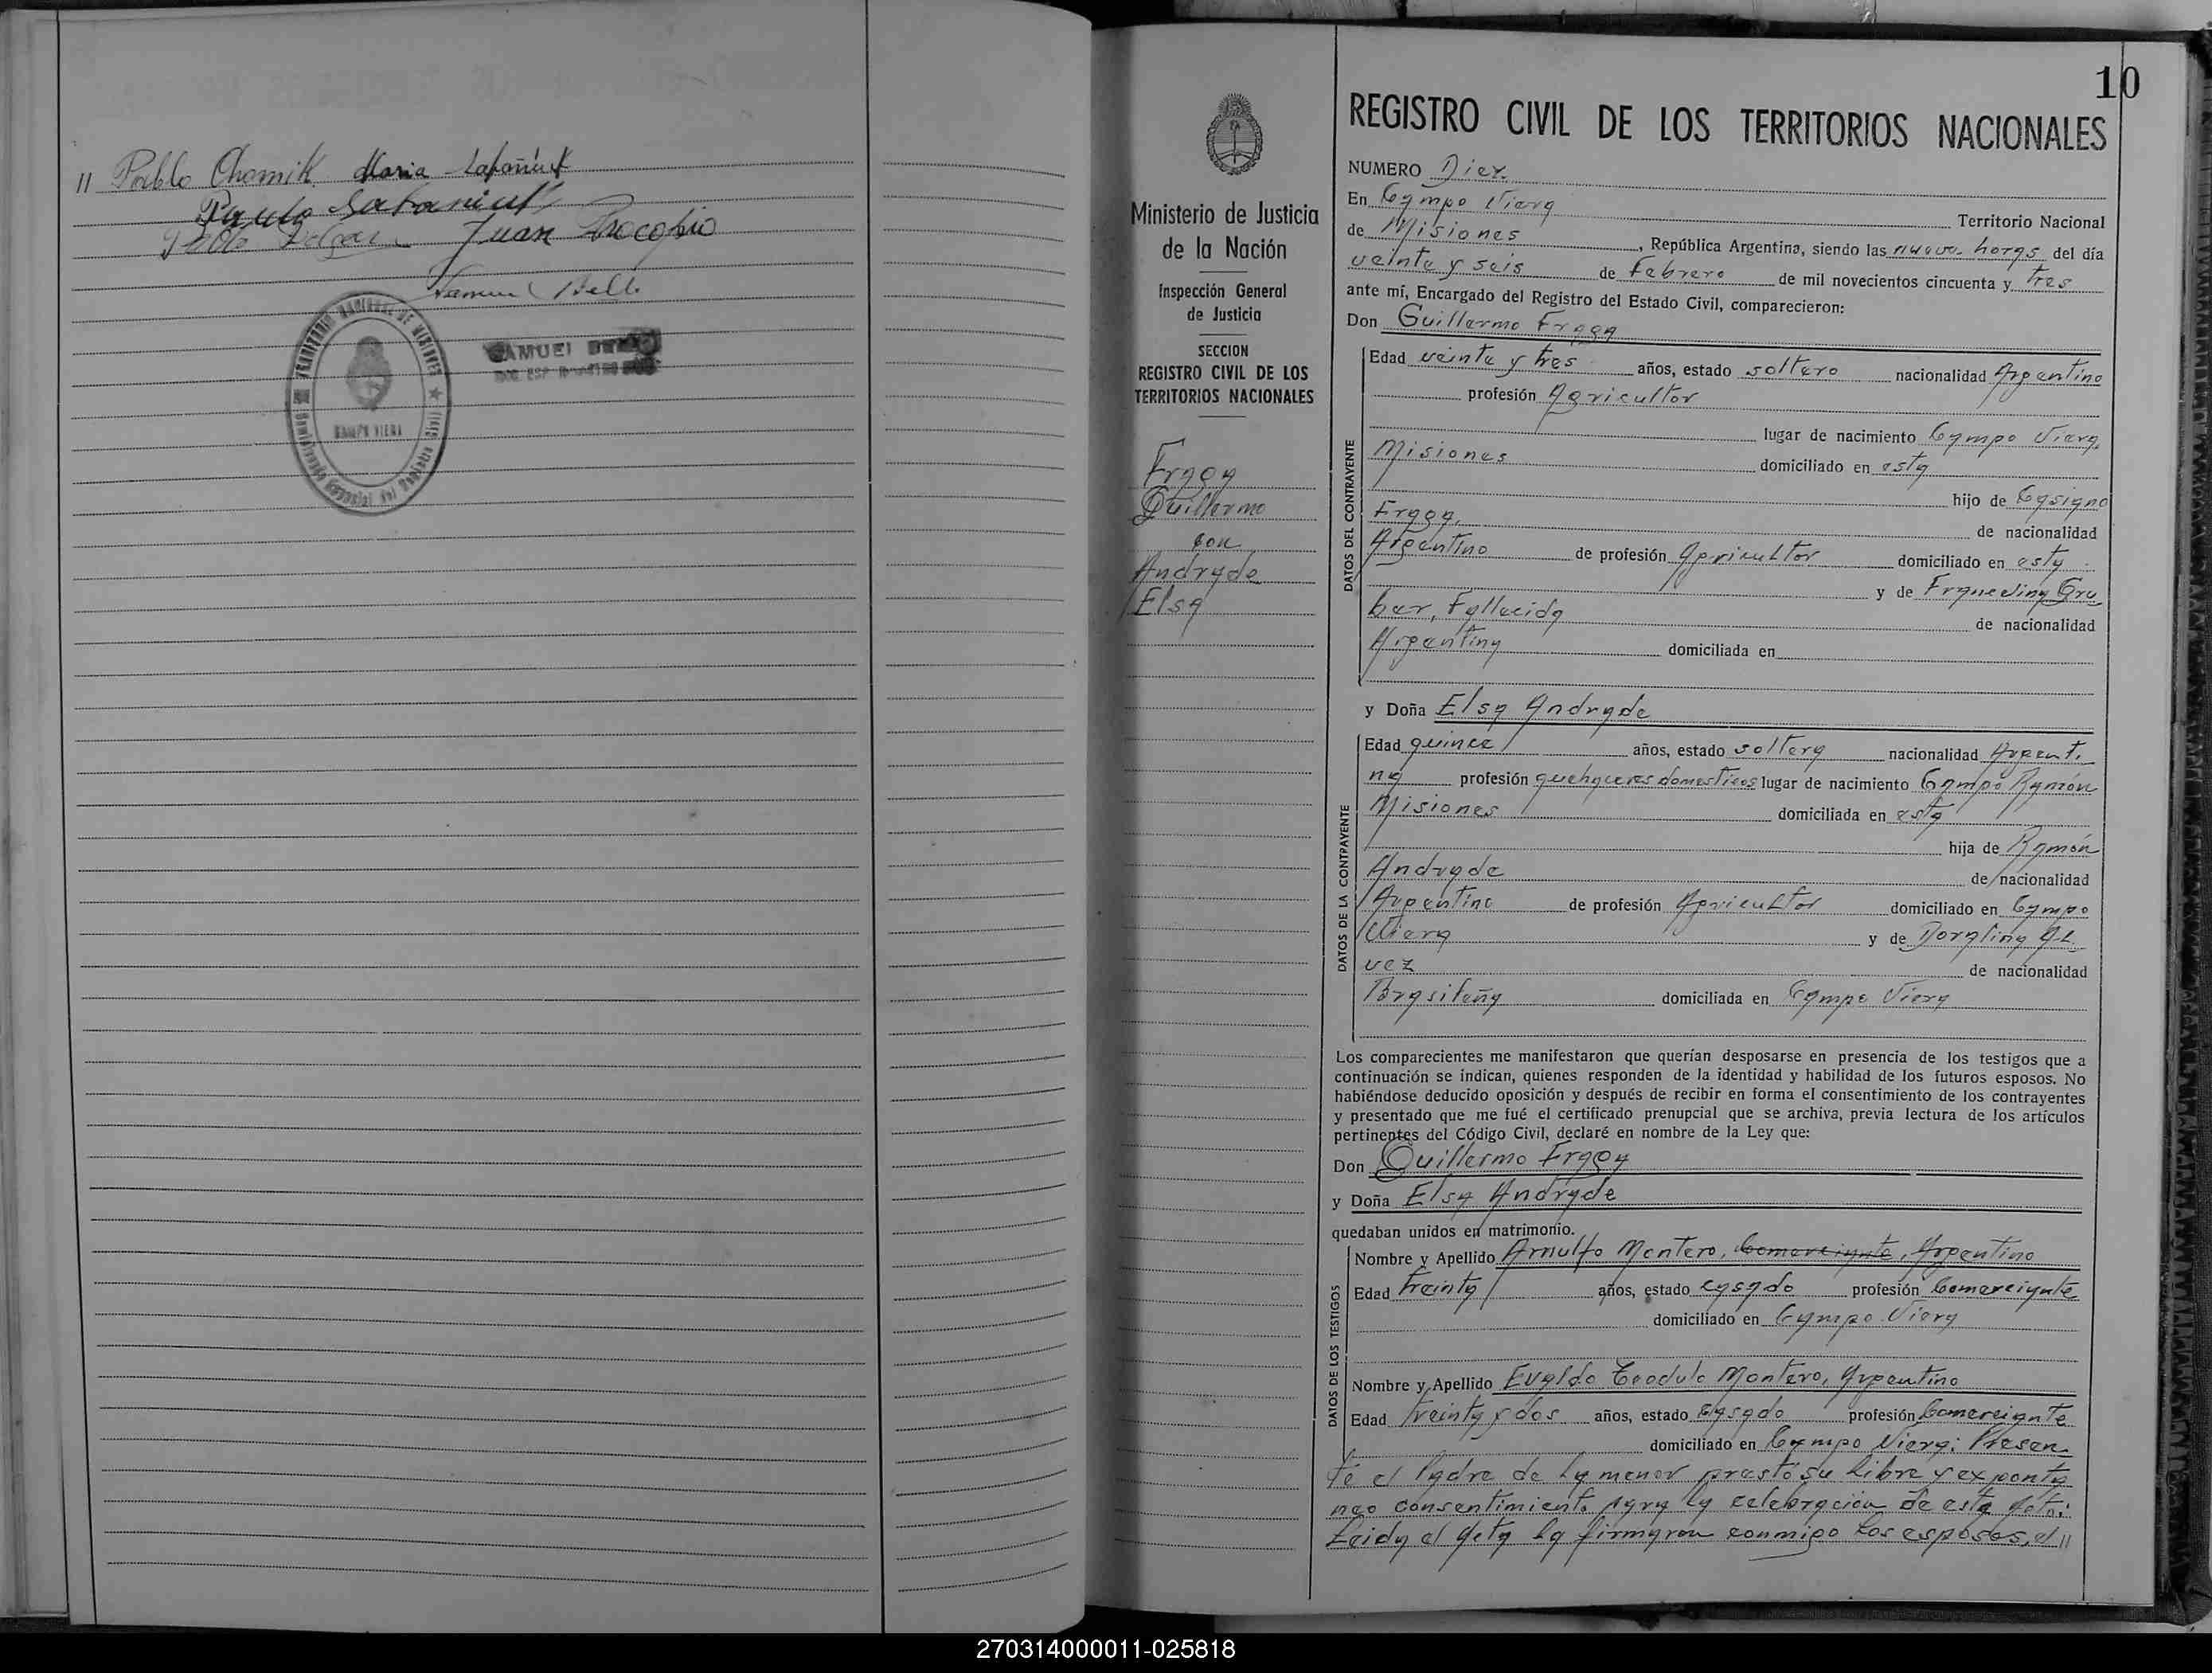 " Pablo Chomik. Maria
Juan Procopio
Samuel
TERRITORIO NACIONAL DE MISIONES
CAMPO VIERA
SAMUEL
10
REGISTRO CIVIL DE LOS TERRITORIOS NACIONALES
Ministerio de Justicia
de la Nación
Inspección General
de Justicia
SECCION
REGISTRO CIVIL DE LOS
TERRITORIOS NACIONALES
Fraga
Guillermo
con
Andrade
Elsa
NUMERO Diez.
En Campo Viera Territorio Nacional
de Misiones, República Argentina, siendo las nueve horas del día
veinte y seis de Febrero de mil novecientos cincuenta y tres
ante mí, Encargado del Registro del Estado Civil, comparecieron:
Don Guillermo Fraga
DATOS DEL CONTRAYENTE
Edad veinte y tres años, estado soltero nacionalidad Argentino
profesión Agricultor
lugar de nacimiento Campo Viera,
Misiones domiciliado en esta
hijo de Casigno
Fraga, de nacionalidad
Argentino de profesión Agricultor domiciliado en esta
y de Gru
ber, Fallecida de nacionalidad
Argentina domiciliada en
y Doña Elsa Andrade
DATOS DE LA CONTRAYENTE
Edad quince años, estado soltera nacionalidad Argenti
na profesión quehaceres domesticos lugar de nacimiento Campo Ramón
Misiones domiciliada en esta
hija de Ramón
Andrade de nacionalidad
Argentino de profesión Agricultor domiciliado en Campo
Viera y de Doralina Al
vez de nacionalidad
Brasileña domiciliada en Campo Viera
Los comparecientes me manifestaron que querían desposarse en presencia de los testigos que a
continuación se indican, quienes responden de la identidad y habilidad de los futuros esposos. No
habiéndose deducido oposición y después de recibir en forma el consentimiento de los contrayentes
y presentado que me fué el certificado prenupcial que se archiva, previa lectura de los artículos
pertinentes del Código Civil, declaré en nombre de la Ley que:
Don Guillermo Fraga
y Doña Elsa Andrade
quedaban unidos en matrimonio.
DATOS DE LOS TESTIGOS
Nombre y Apellido Arnulfo Montero, Comerciante, Argentino
Edad treinta años, estado casado profesión Comerciante
domiciliado en Campo Viera
Nombre y Apellido Evaldo Teodulo Montero, Argentino
Edad treinta y dos años, estado casado profesión Comerciante
domiciliado en Campo Viera; Presen
te el Padre de la menor prestó su libre y exponta
neo consentimiento para la celebración de este acto:
Leida el acta la firmaron conmigo los esposos, el "
270314000011-025818